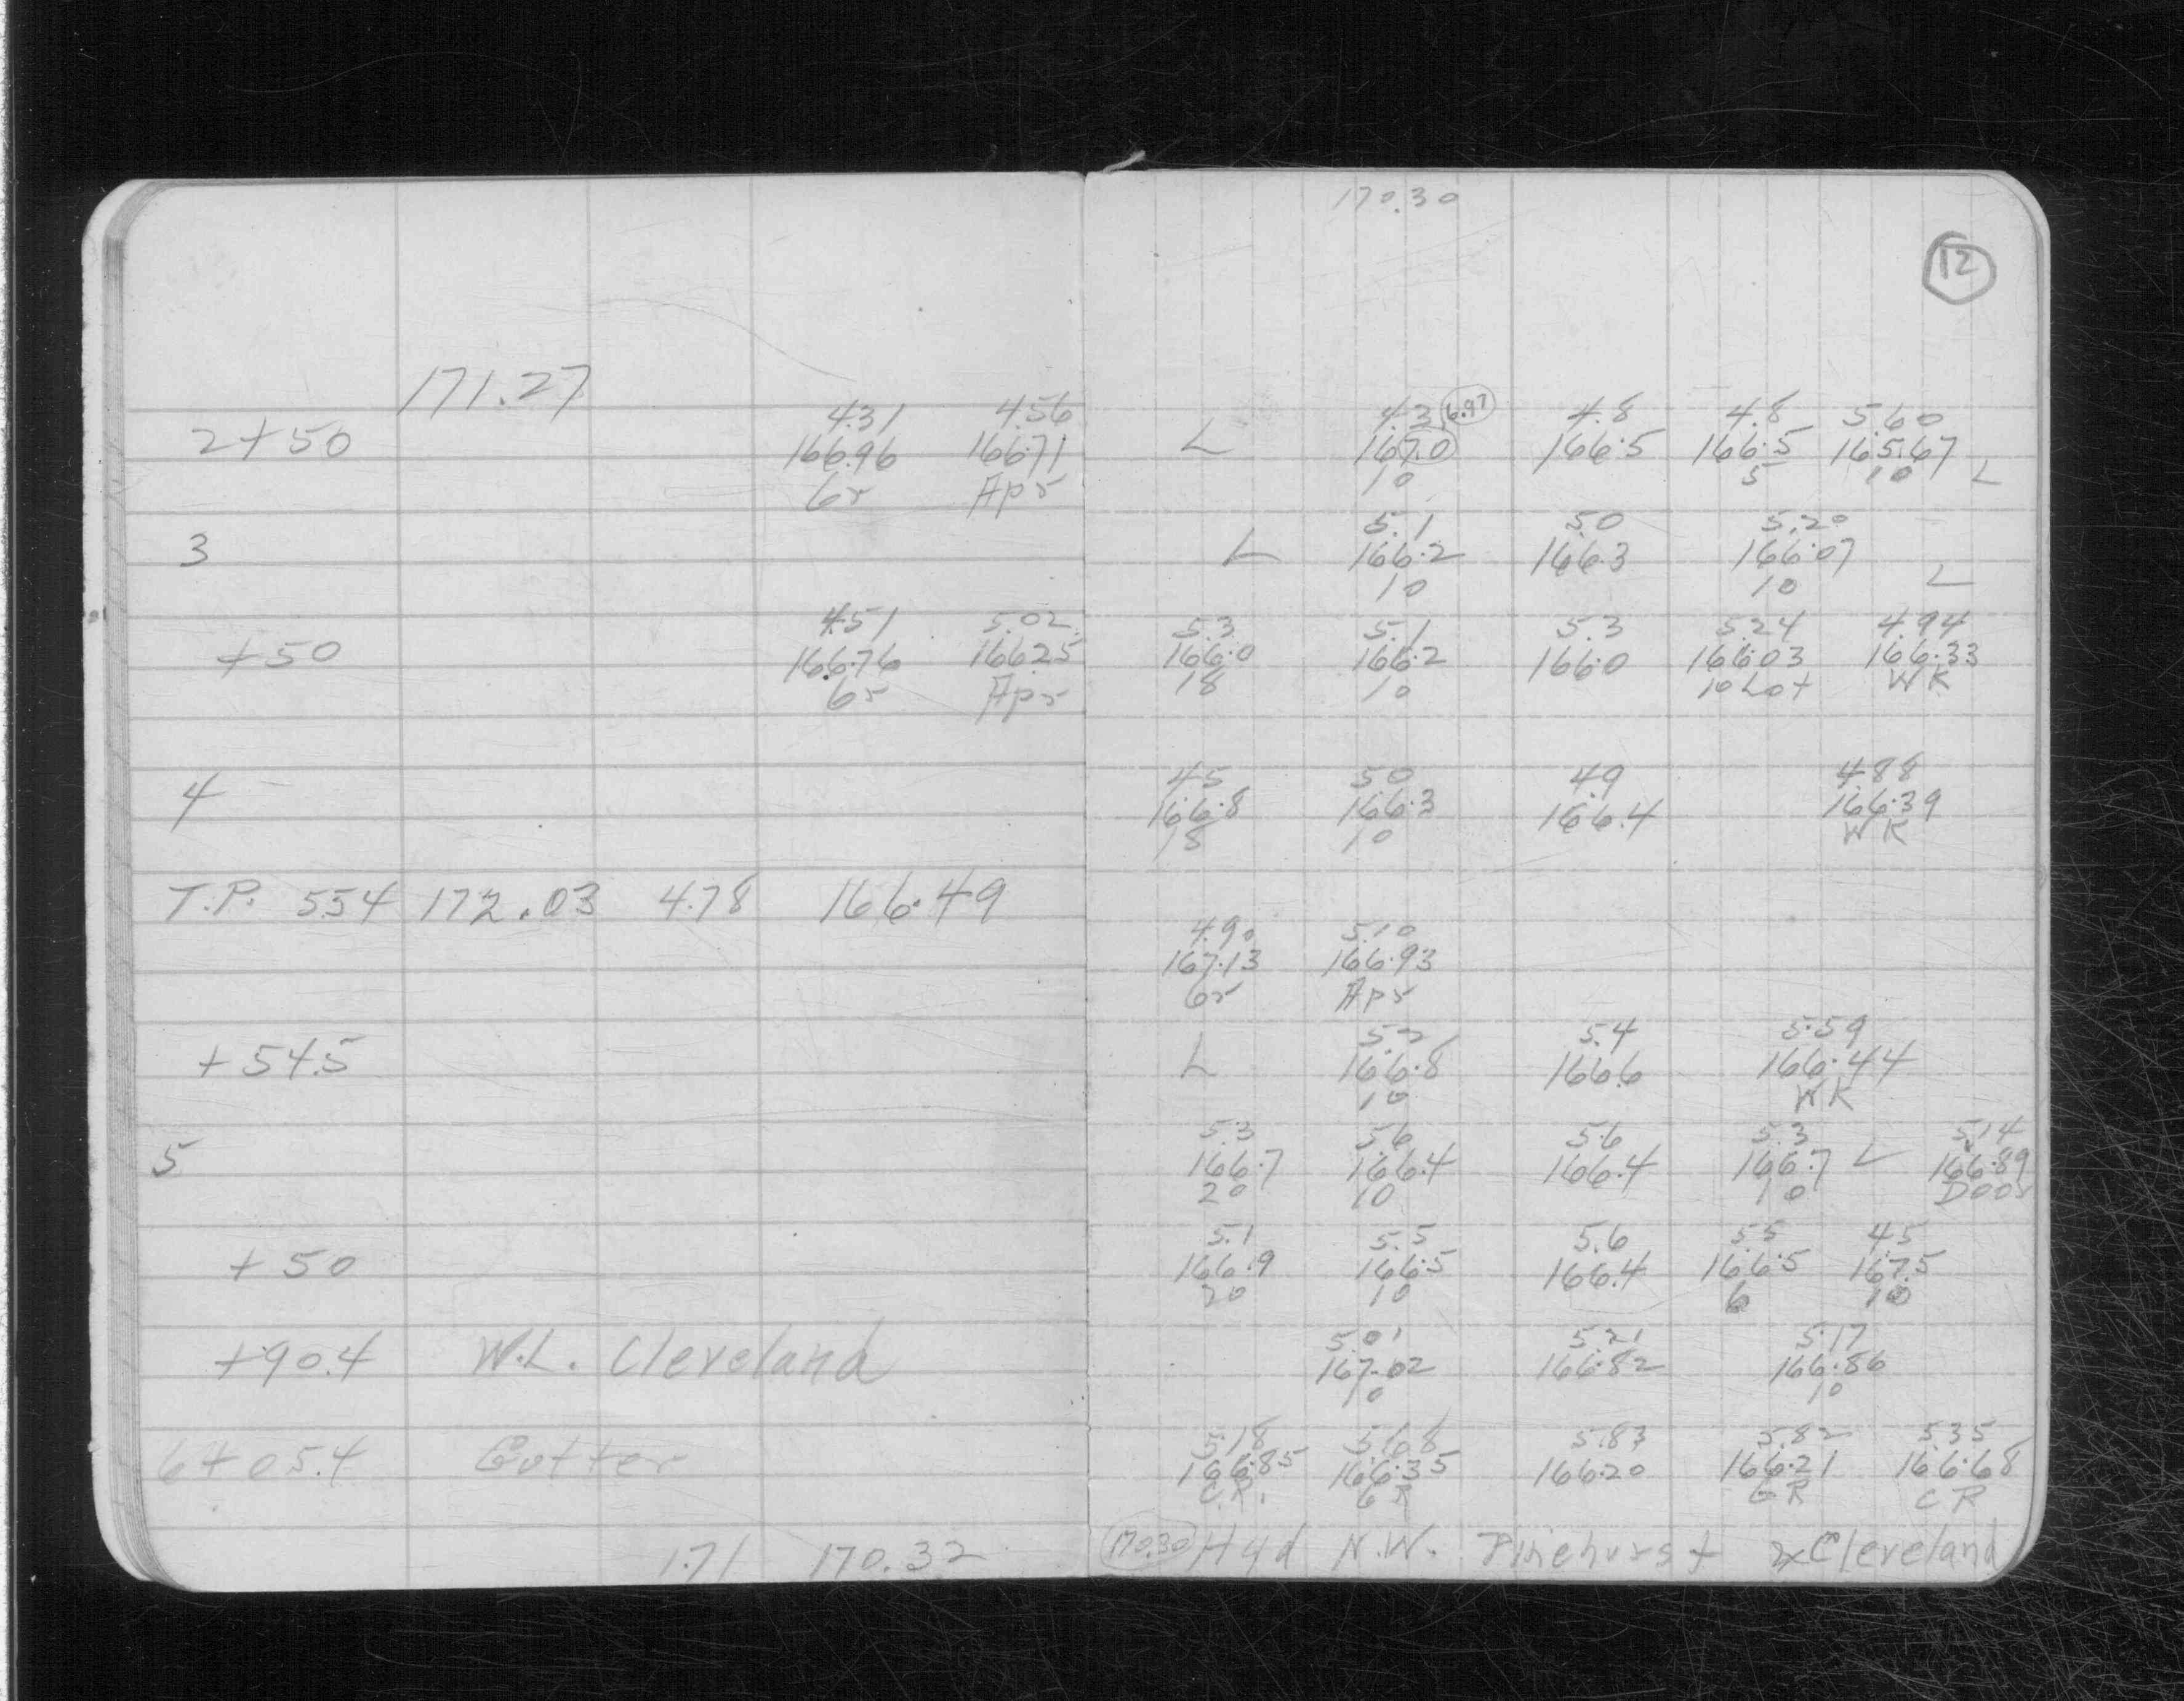 170.30
12
171.27
4.31 4.56 4.3 6.97 4.8 4.8 5.60
2+50 166.96 166.71 L 167.0 166.5 166.5 165.67
Gr Apr 10 5 10 L
5.1 5.0 5.20
3 L 166.2 166.3 166.07
10 10 L
4.51 5.02 5.3 5.1 5.3 5.24 4.94
+50 166.76 166.25 166.0 166.2 166.0 166.03 166.33
Gr Apr 18 10 10 Lot WK
4.5 5.0 4.9 4.88
4 166.8 166.3 166.4 166.39
18 10 WK
T.P. 5.54 172.03 4.78 166.49
4.90 5.10
167.13 166.93
Gr Apr
5.2 5.4 5.59
+54.5 L 166.8 166.6 166.44
10 WK
5.3 5.6 5.6 5.3 5.14
5 166.7 166.4 166.4 166.7 L 166.89
20 10 10 Door
5.1 5.5 5.6 5.5 4.5
+50 166.9 166.5 166.4 166.5 167.5
20 10 6 10
5.01 5.21 5.17
+90.4 W.L. Cleveland 167.02 166.82 166.86
10 10
5.18 5.68 5.83 5.82 5.35
6+05.4 Gutter 166.85 166.35 166.20 166.21 166.68
C.R. GR GR CR
1.71 170.32 170.30 Hyd N.W. Pinehurst & Cleveland